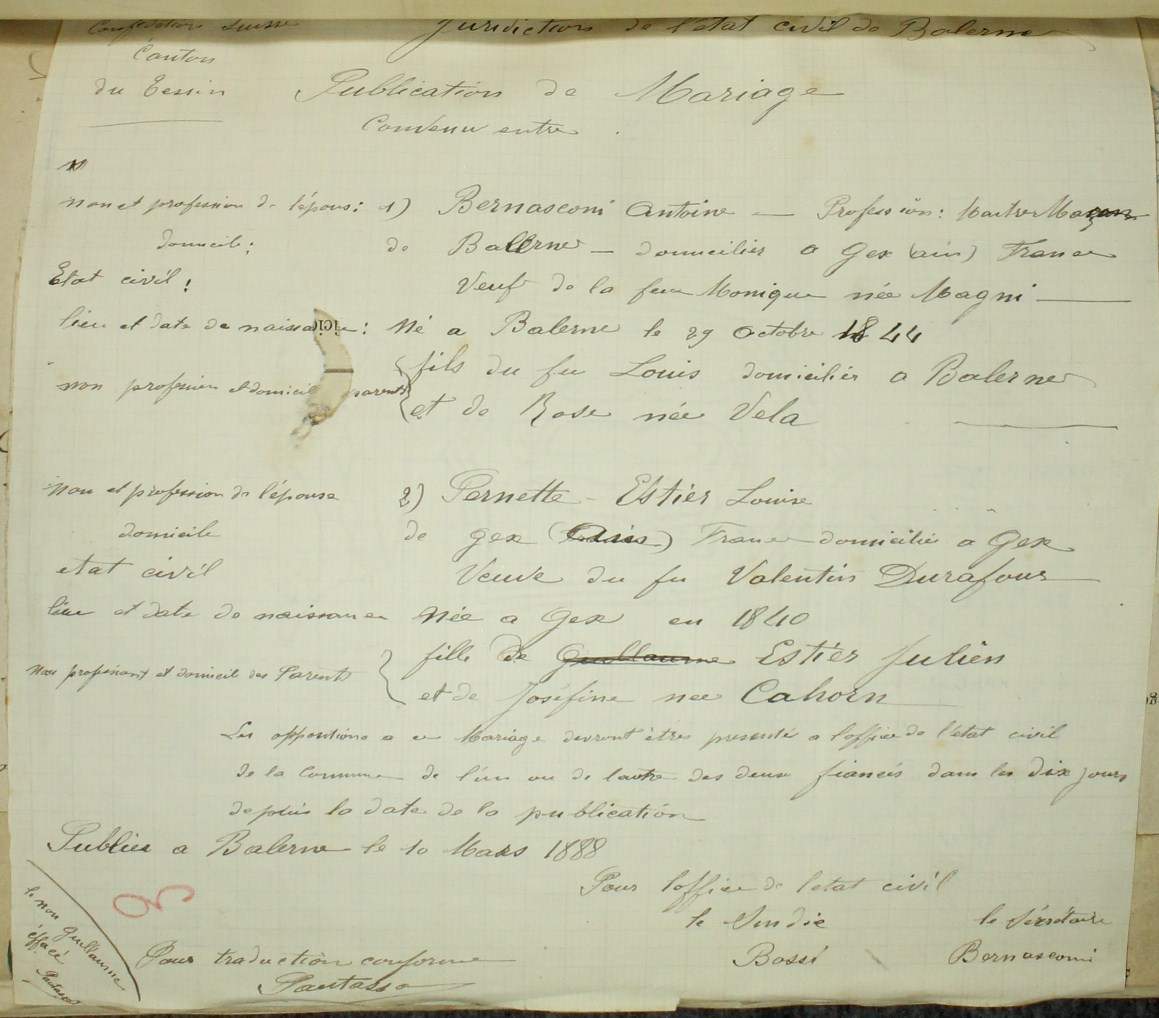 Confédération Suisse Juridiction de l'etat civil de Balerne
Canton
du Tessin Publication de Mariage
Convenu entre
Non et profession de l'épous: 1) Bernasconi Antoine — Profession: Maitre Maçon
domicile: de Balerne — domicilier a Gex (ain) France
Etat civil: Veuf de la feue Monique née Magni
lieu et date de naissance: Né a Balerne le 29 Octobre 1844
non profession et domicile parents fils du fu Louis domicilier a Balerne
et de Rose née Vela
Non et profession de l'épouse 2) Pernette - Estier Louise
domicile de gex (Ain) France domiciliée a Gex
etat civil Veuve du fu Valentin Durafour
lieu et date de naissance Née a Gex en 1840
Non professiont et domicil des Parents fille de Guillaume Estier Julien
et de Joséfine nee Cahorn
Les oppositions a ce Mariage devront êtres presenté a l'office de l'état civil
de la Commune de l'un ou de l'autre des deux fiancés dans les dix jours
depuis la date de la publication
Publiée a Balerne le 10 Mars 1888
Pour l'office de l'etat civil
le Sindic le Sécrétaire
Bossi Bernasconi
3
le non Guillaume
éffacé
Pantasso
Pour traduction conforme
Pantasso
ici